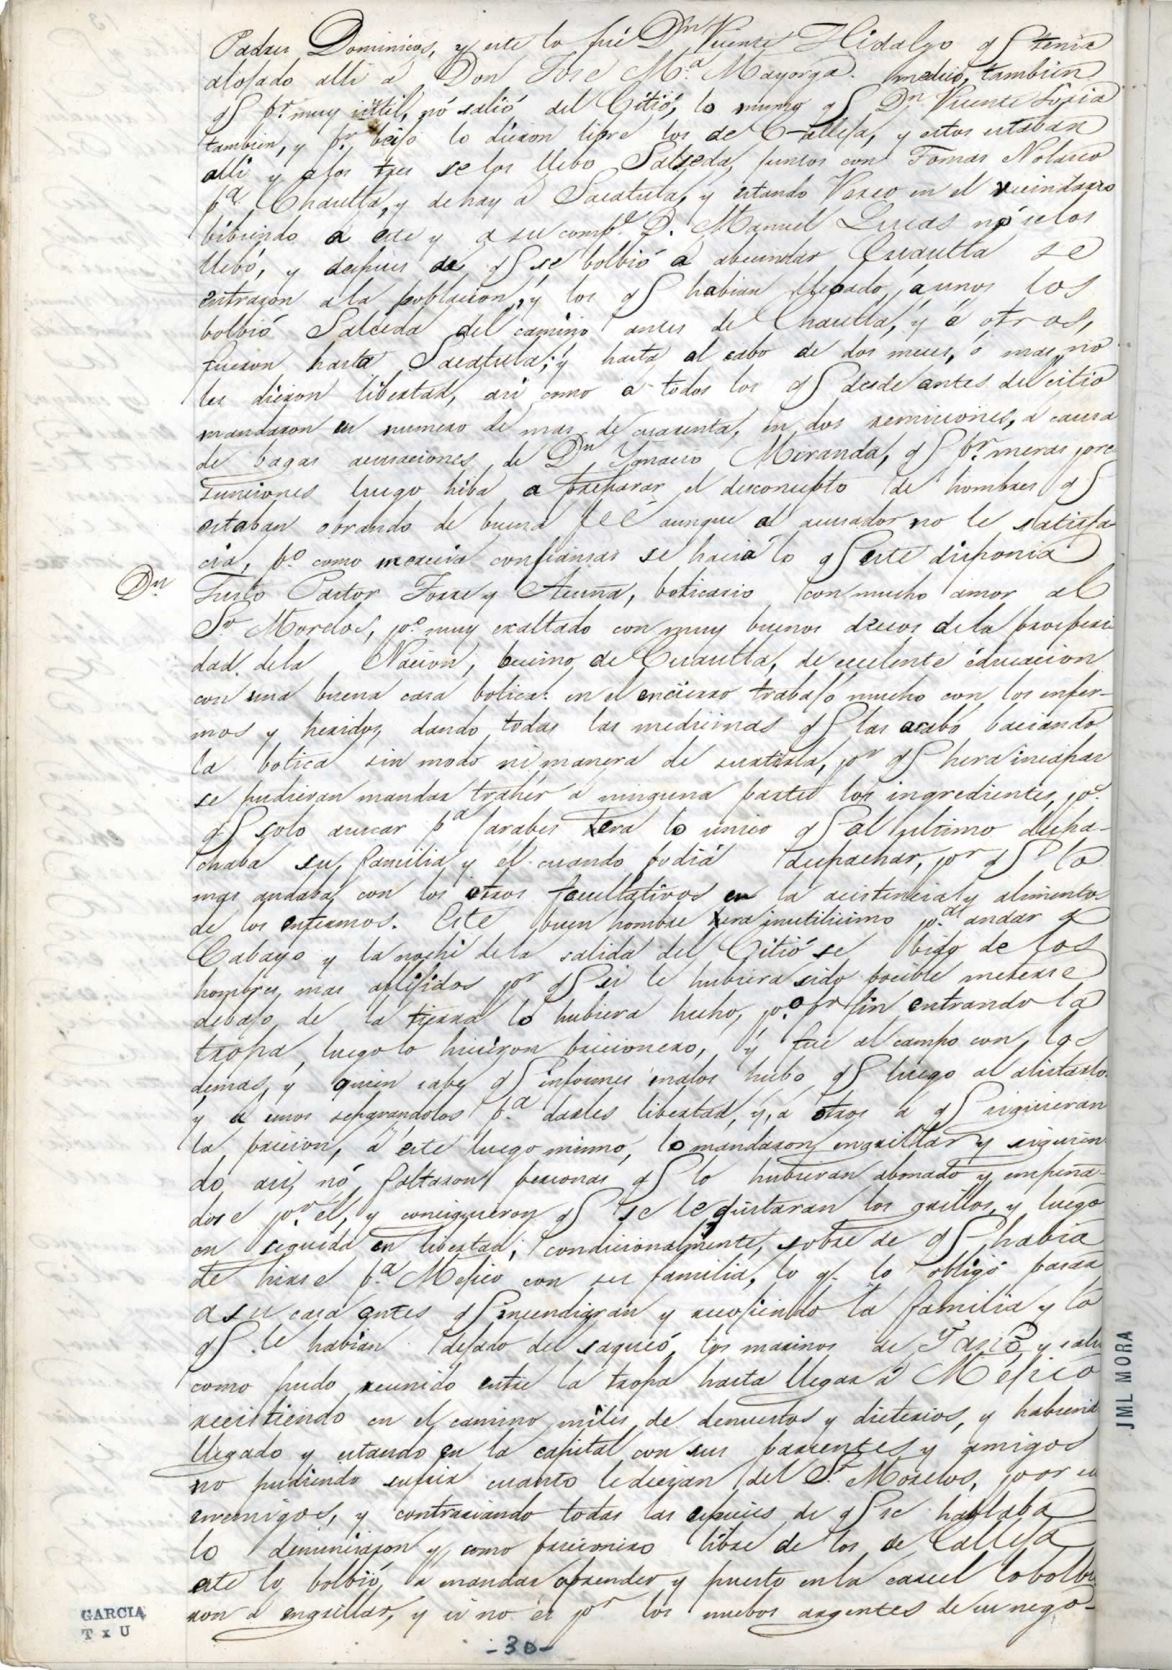 Padres Dominicos, y este lo fué Dn Vicente Hidalgo q̃ tenia
alojado alli a Don Jose Ma. Mayorga. medico, tambien
q̃ pr. muy util, nó salió del Citió, lo mismo q̃ Dn Vicente Loria
tambien, y pr. biejo lo dieron lipre los de Calleja, y estos estaban
alli y alos tres se los llebo Salseda, juntos con Tomas Nolasco
pa. Chautla, y de hay a Sacatula, y estando Vasco en el vecindario
bibiendo a ese y a su compo. D. Manuel Lucas nó selos
llebó, y despues de q̃ se bolbió a abecindar Cuautla se
entraron ala poblacion, y los q̃ habian llebado, aunos los
bolbió Salceda del camino antes de Chautla, y á otros,
fueron hasta Sacatula; y hasta al cabo de dos meses, ó mas no
les dieron libertad, asi como a todos los q̃ desde antes del citio
mandaron en numero de mas de cuarenta, en dos remiciones, a causa
de bagas acusaciones de Dn Ygnacio Miranda, q̃ pr. meras pre
sunciones luego hiba a preparar el desconcepto de hombres q̃
estaban obrando de buena feé aunque al acusador no le satisfa
cia, po. como merecia confiansas se hacia lo q̃ este disponia
Dn
Justo Pastor Torre y Acuña, boticario con mucho amor al
Sr Morelos, po. muy exaltado con muy buenos deceos dela prosperi
dad dela Nacion, becino de Cuautla, de exelente educacion
con una buena casa botica: en el encierro trabajó mucho con los enfer-
mos y heridos, dando todas las medicinas q̃ las acabó baciando
la botica sin modo ni manera de surtirla, pr. q̃ hera incapas
se pudieran mandar traher a ninguna parte los ingredientes, po.
q̃ solo asucar pa. jarabes era lo unico q̃ al ultimo despa-
chaba su familia y él cuando podiá despachar, pr. q̃ lo
mas andaba con los otros facultativos en la asistencia y alimento
de los enfermos. Este buen hombre era inutilicimo pa. andar a
Cabayo y la noche dela salida del Citió se bido de los
hombres mas aflijidos pr. q̃ si le hubiera sido pocible meterse
debajo de la tierra lo hubiera hecho, po. pr. fin entrando la
tropa, luego lo hicieron pricionero, y fue al campo con los
demas, y quien sabe q̃ informes malos hubo q̃ luego al alistarlo
y a unos separandolos pa. darles libertad, y a otros a q̃ siguieran
la pricion, a este luego mismo, lo mandaron engrillar y siguien
do asi, nó faltaron personas q̃ lo hubieran abonado y empeña-
dose pr. el, y consiguieron q̃ se le quitaran los grillos, y luego
en seguida en libertad; condicionalmente, sobre de q̃ había
de hirse pa. Mejico con su familia, lo q. lo obligó pasar
a su casa antes q̃ incendiaran y recojiendo la familia y lo
q̃ le habian dejado del saqueó los marinos de Fasió, y salió
como pudo reunido entre la tropa hasta llegar á Méjico
recistiendo en el camino miles de denuestos y dicterios, y habiend
llegado y estando en la capital con sus parientes y amigos
no pudiendo sufrir cuanto le decian del Sr Morelos, por su
enemigos, y contrariando todas las especies de q̃ se hablaba
lo denunciaron y como pricionero libre de los de Calleja
este lo bolbió a mandar aprender y puesto en la carcel lo bolbie
ron a engrillar, y si no es pr. los nuebos agentes de su nego-
-30-
GARCIA
T x U
JML MORA